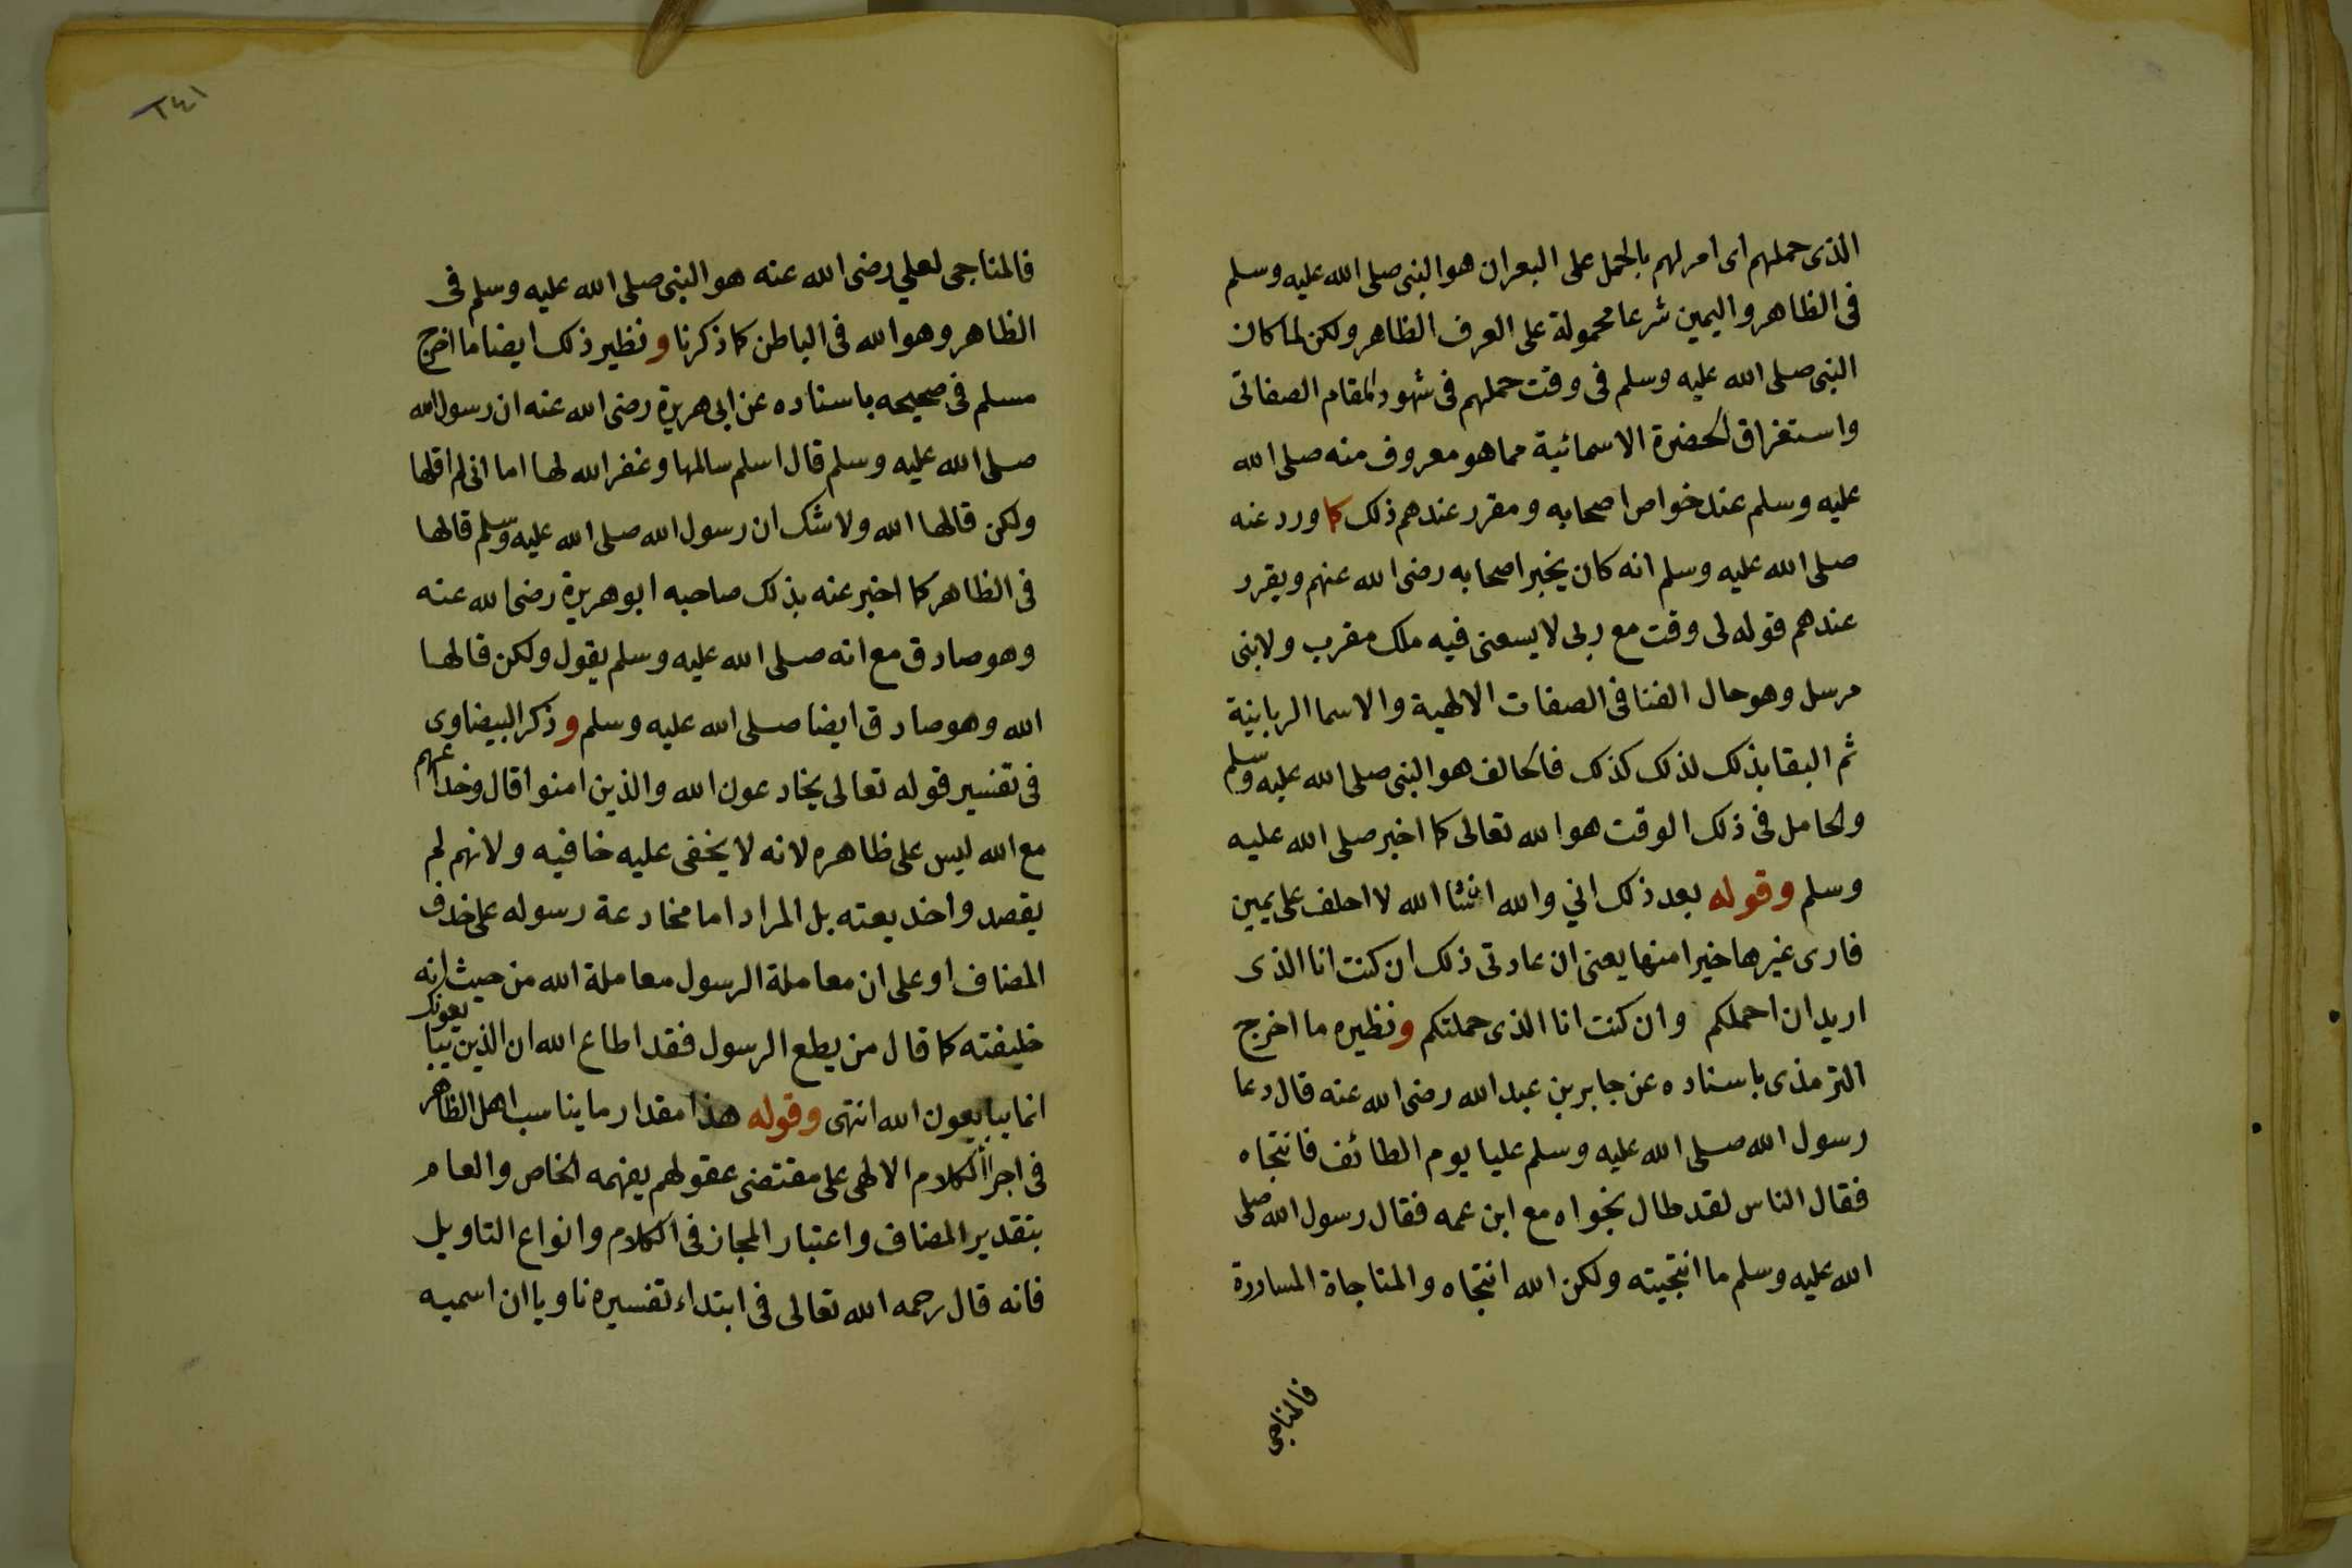 الذى حملهم اى امر لهم بالحمل على البعران هو النبى صلى الله عليه وسلم
فى الظاهر واليمين شرعا محمولة على العرف الظاهر ولكن لما كان
النبى صلى الله عليه وسلم فى وقت حملهم فى شهود المقام الصفاتى
واستغراق الحضرة الاسمائية مما هو معروف منه صلى الله
عليه وسلم عند خواص اصحابه ومقرر عندهم ذلك كما ورد عنه
صلى الله عليه وسلم انه كان يخبر اصحابه رضى الله عنهم ويقرر
عندهم قوله لى وقت مع ربى لا يسعنى فيه ملك مقرب ولا نبى
مرسل وهو حال الفنا فى الصفات الالهية والاسما الربانية
ثم البقا بذلك لذلك كذلك فالحالف هو النبى صلى الله عليه وسلم
والحامل فى ذلك الوقت هو الله تعالى كما اخبر صلى الله عليه
وسلم وقوله بعد ذلك اني والله انشا الله لا احلف على يمين
فارى غيرها خيرا منها يعنى ان عادتى ذلك ان كنت انا الذى
اريد ان احملكم وان كنت انا الذى حملتكم ونظيره ما اخرج
الترمذى باسناده عن جابر بن عبد الله رضى الله عنه قال دعا
رسول الله صلى الله عليه وسلم عليا يوم الطائف فانتجاه
فقال الناس لقد طال نجواه مع ابن عمه فقال رسول الله صلى
الله عليه وسلم ما انتجيته ولكن الله انتجاه والمناجاة المساررة
فالمناجى
١٤٢
فالمناجى لعلي رضى الله عنه هو النبى صلى الله عليه وسلم فى
الظاهر وهو الله فى الباطن كما ذكرنا ونظير ذلك ايضا ما اخرج
مسلم فى صحيحه باسناده عن ابى هريرة رضى الله عنه ان رسول الله
صلى الله عليه وسلم قال اسلم سالمها وغفر الله لها اما انى لم اقلها
ولكن قالها الله ولا شك ان رسول الله صلى الله عليه وسلم قالها
فى الظاهر كما اخبر عنه بذلك صاحبه ابو هريرة رضى الله عنه
وهو صادق مع انه صلى الله عليه وسلم يقول ولكن قالها
الله وهو صادق ايضا صلى الله عليه وسلم وذكر البيضاوى
فى تفسير قوله تعالى يخادعون الله والذين امنوا قال وخداعهم
مع الله ليس على ظاهره لانه لا يخفى عليه خافيه ولانهم لم
يقصدوا خديعته بل المراد اما مخادعة رسوله على حذف
المضاف او على ان معاملة الرسول معاملة الله من حيث انه
خليفته كما قال من يطع الرسول فقد اطاع الله ان الذين يبايعونك
انما يبايعون الله انتهى وقوله هذا مقدار ما يناسب اهل الظاهر
فى اجراء الكلام الالهى على مقتضى عقولهم يفهمه الخاص والعام
بتقدير المضاف واعتبار المجاز فى الكلام وانواع التاويل
فانه قال رحمه الله تعالى فى ابتداء تفسيره ناويا ان اسميه